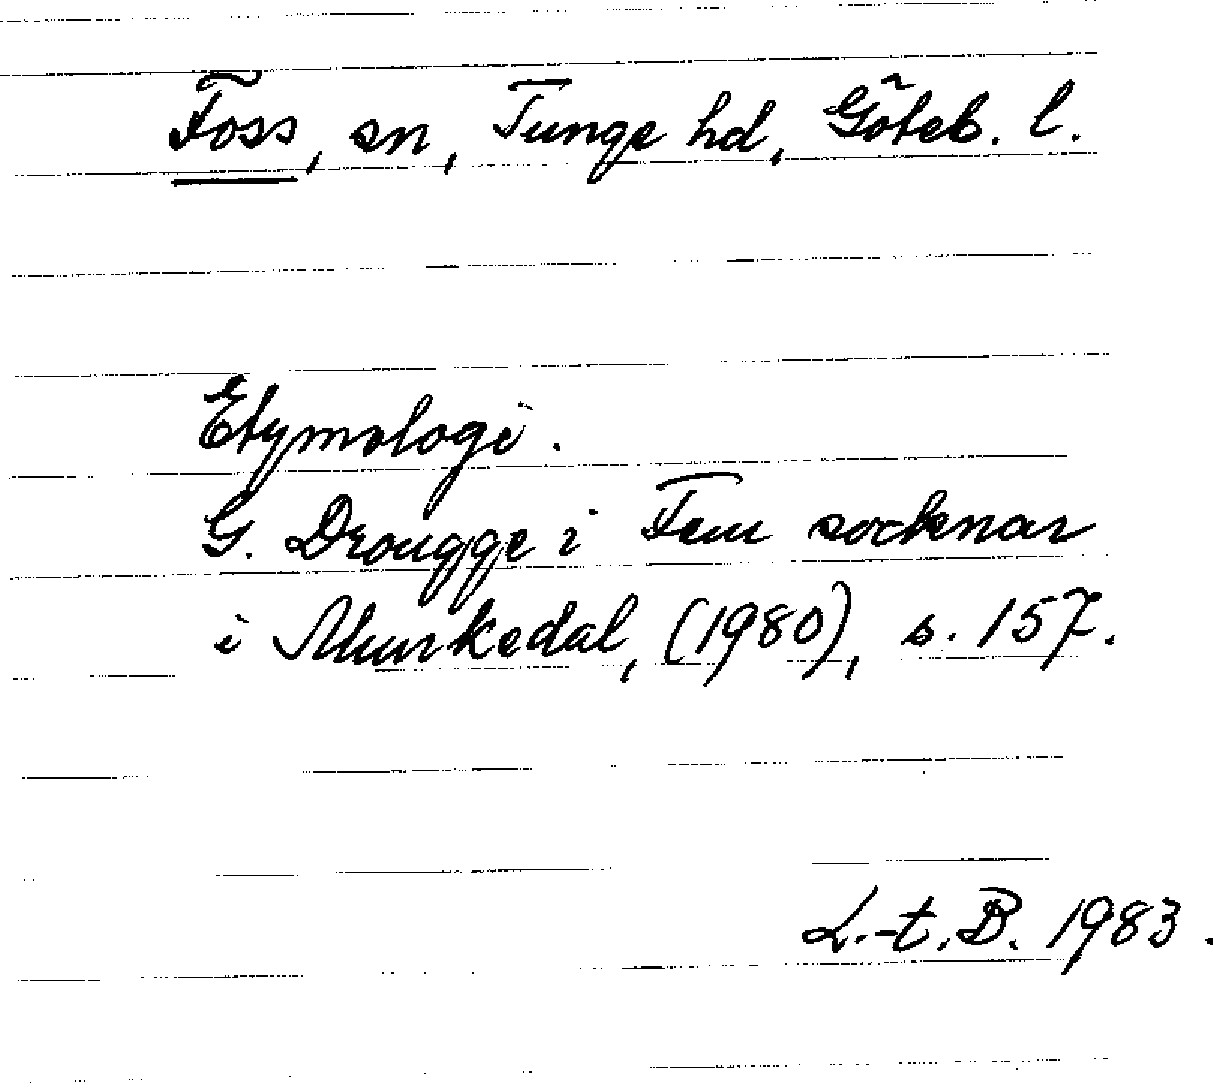 Foss, sn, Tunge hd, Göteb. l.
Etymologi.
G. Drougge i Fem socknar
i Munkedal, (1980), s. 157.
L.-t. B. 1983.